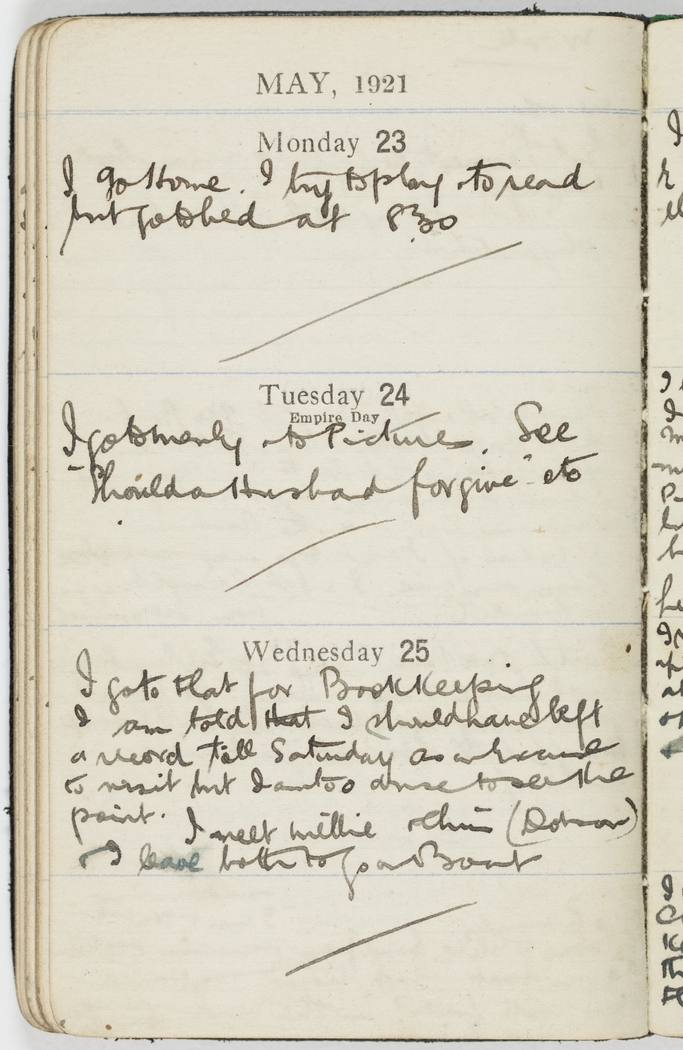 MAY, 1921
Monday 23
I go Home. I try to play & to read
but go to bed at 8.30
Tuesday 24
Empire Day
I go to & to Pictures. See
"Should a Husband forgive" etc
Wednesday 25
I go to that for BookKeeping
I am told that I should have left
a record till Saturday as an excuse
to visit but I am too dense to see the
point.
I meet Millie & him (Dotson)
& I leave both to go on Boat